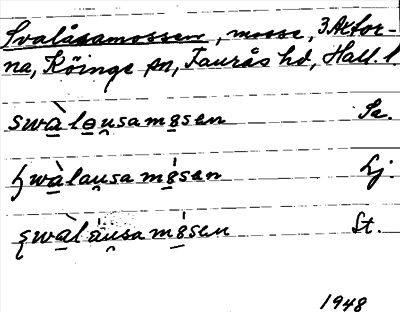 Svalåsamossen, mosse, 3 Attor-
na, Köinge sn, Faurås hd, Hall. l.
swàləusamɵsen Se.
ʂwàlausamɵ́sen Lj.
ʂwàlåusamɵ́sen St.
1948